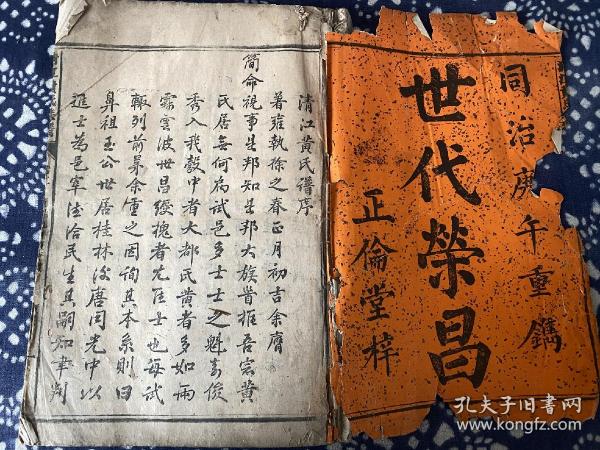 同治庚午重鐫
世代榮昌
正倫堂梓
清江黃民譜序
著雍執徐之春正月初吉余膺
簡命視事是邦知是邦大族首推吾宗黃
氏居無何為試邑多士士之魁奇俊
秀入我彀中者大都氏黃者多如雨
霖雲波世昌綬槐者尤臣士也每試
輙列前茅余重之因詢其本系則曰
鼻祖玉公世居桂林後唐同光中以
進士為邑宰德洽民生其嗣知聿刑
孔夫子旧书网
www.kongfz.com